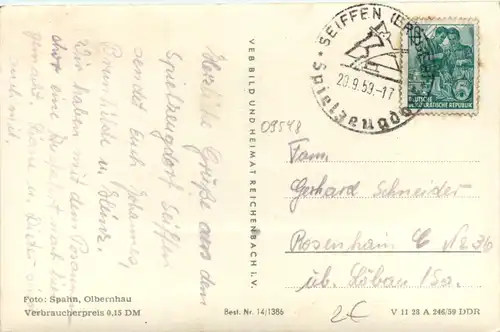 Herzliche Grüße aus dem
Spielzeugdorf Seiffen
sendet Euch Johannes,
Brunhilde u. Heinz.
Wir haben mit dem Posaunen
chor eine
gemacht. Dieter
auch mit.
VEB BILD UND HEIMAT REICHENBACH i. V.
SEIFFEN (ERZGEB)
20.9.59.-17
Spiel
DEUTSCHE
DEMOKRATISCHE REPUBLIK
6
09548
Fam.
Gerhard Schneider
Rosenhain C Nr 36
üb. Löbau /Sa.
2€
Foto: Spahn, Olbernhau
Verbraucherpreis 0,15 DM
Best. Nr. 14/1386
V 11 28 A 246/59 DDR